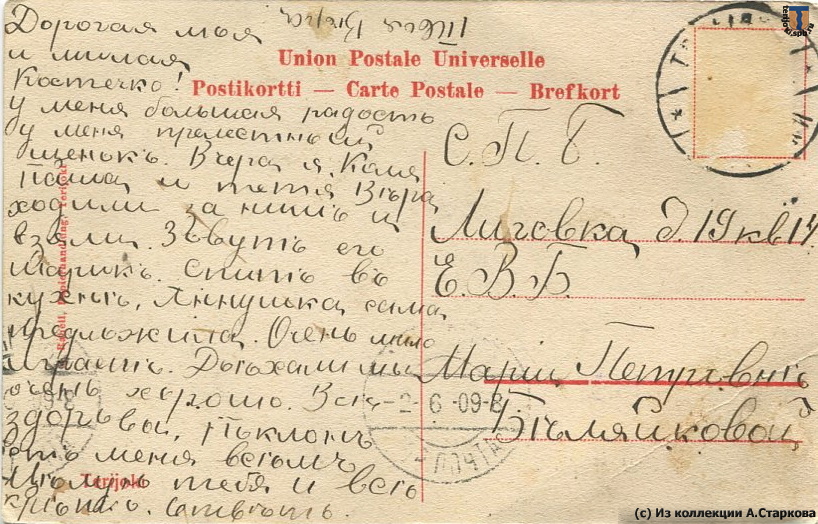 Дорогая моя
и милая
Костечко!
у меня большая радость
у меня прелестный
щенокъ. Вчера я, Коля
Паша и тетя Вѣра
ходили за нимъ и
взяли. Зовутъ его
Марикъ. Спитъ въ
кухнѣ, Аннушка сама
предложила. Очень мило
играетъ. Доѣхали мы
очень хорошо. Всѣ
здоровы, Поклонъ
отъ меня всѣмъ
Цѣлую тебя и всѣхъ
крѣпко.
Union Postale Universelle
Postikortti — Carte Postale — Brefkort
С. П. Б.
Лиговка д. 19 кв 14
Е. В. Б.
Маріи Петровнѣ
Бѣляйковой
-2-6-09-8
ПОЧТА
Terijoki
terijoki.spb.ru
(c) Из коллекции А.Старкова